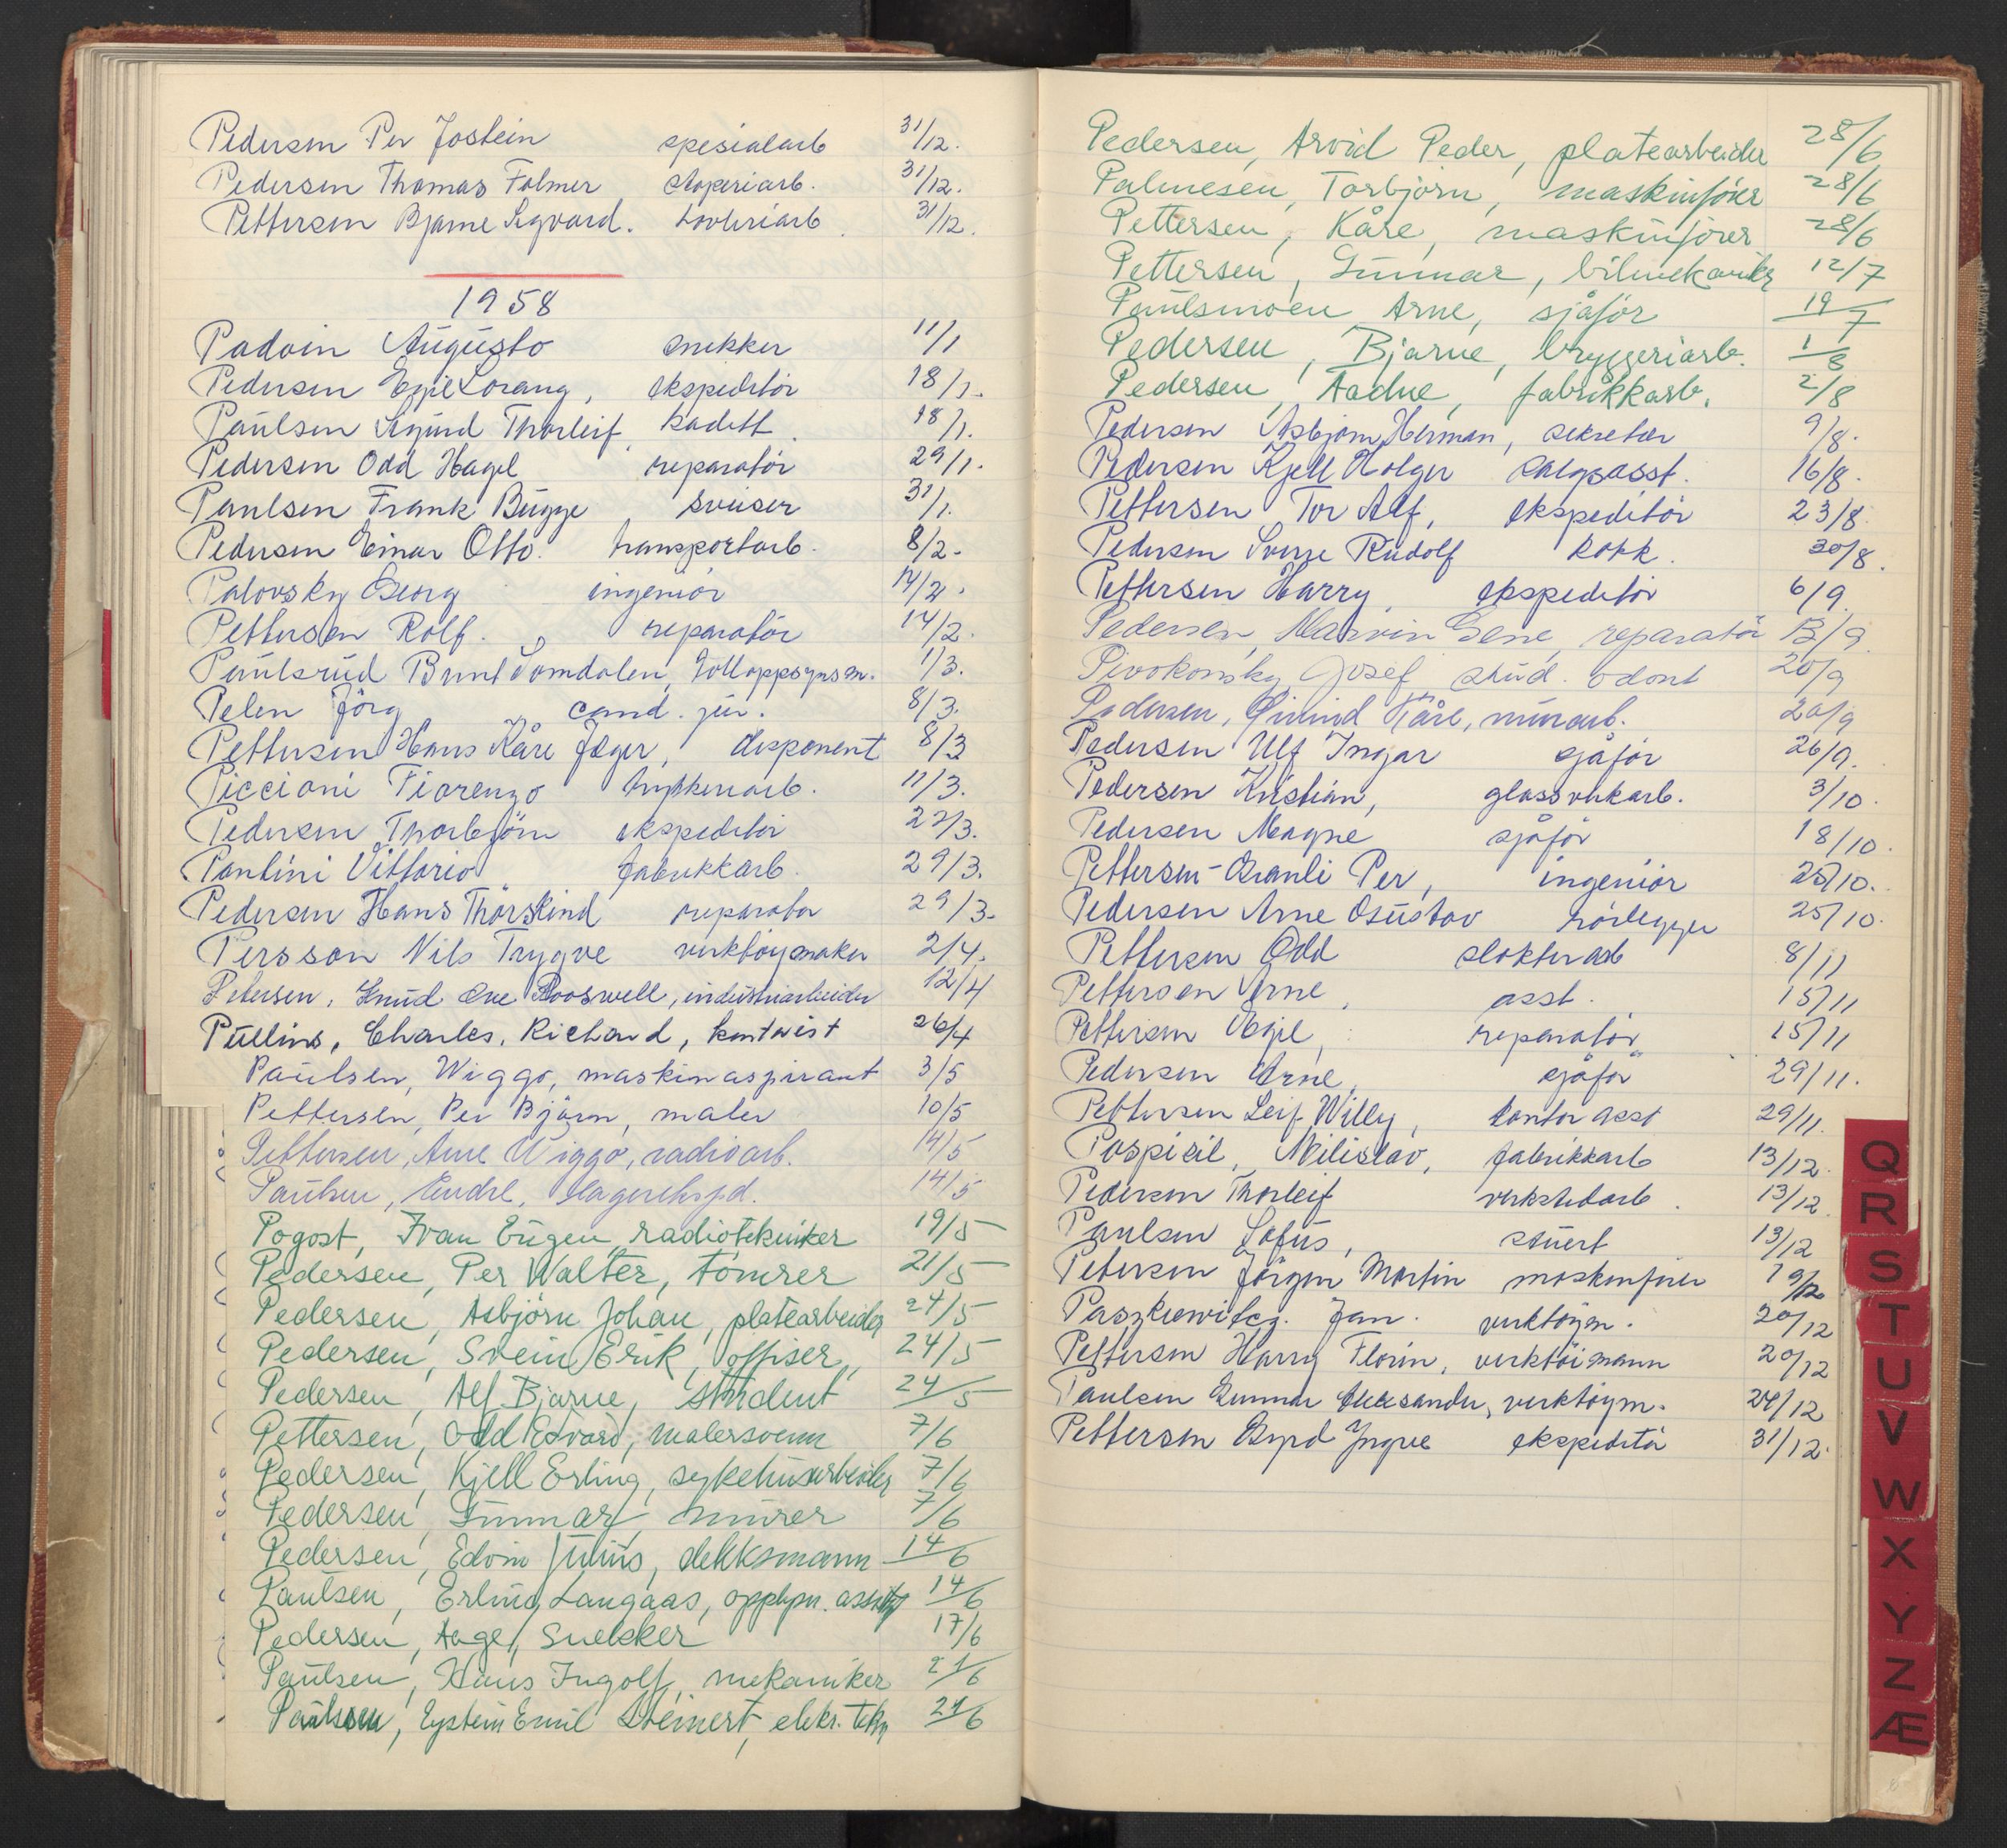 Pedersen Per Jostein spesialarb 31/12.
Pedersen Thomas Folmer støperiarb. 31/12.
Pettersen Bjarne Sigvard. 31/12.
1958
Padoin Augusto snekker 11/1
Pedersen Egil Lorang, ekspeditör 18/1.
Paulsen Sigurd Thorleif, kadett 18/1.
Pedersen Odd Hagel reparatör 29/1.
Paulsen Frank Bugge sveiser 31/1.
Pedersen Einar Otto. transportarb. 8/2.
Palovsky Georg ingeniör 14/2.
Pettersen Rolf. reparatör 14/2.
Paulsrud Bernt Somdalen, tolloppsynsm. 1/3.
Pelen Jörg cand. jur. 8/3.
Pettersen Hans Kåre Jæger, disponent 8/3
Piccioni Fiorenzo trykkeriarb. 11/3.
Pedersen Thorbjörn ekspeditör 22/3.
Pantini Vittorio fabrikkarb. 29/3.
Pedersen Hans Thorskind reparatör 29/3.
Persson Nils Trygve verktöymaker 2/4.
Petersen, Knud Ove Rooswell, industriarbeider 12/4
Pullins, Charles, Richard, kontorist 26/4
Paulsen, Wiggo, maskinaspirant 3/5
Pettersen, Per Björn, maler 10/5
Pettersen, Arne Wiggo, radioarb. 14/5
Paulsen, Endre, lagereksped. 14/5
Pogost, Ivan Eugen, radiotekniker 19/5
Pedersen, Per Walter, tömrer 21/5
Pedersen, Asbjörn Johan, platearbeider 24/5
Pedersen, Svein Erik, offiser, 24/5
Pedersen, Alf Bjarne, student 24/5
Pettersen, Odd Edvard, malersvenn 7/6
Pedersen, Kjell Erling, sykehusarbeider 7/6
Pedersen, Gunnar, murer 7/6
Pedersen, Edvin Julius, dekksmann 14/6
Paulsen, Erling Langaas, opplysn. 14/6
Pedersen, Aage, snekker 17/6
Paulsen, Hans Ingolf, mekaniker 21/6
Paulsen, Eystein Emil Steinert, elekr. tekn 21/6
Pedersen, Arvid Peder, platearbeider 28/6
Palmesen, Torbjörn, maskinförer 28/6
Pettersen, Kåre, maskinförer 28/6
Pettersen, Gunnar, bilmekaniker 12/7
Paulsmoen Arne, sjåför 19/7
Pedersen, Bjarne, bryggeriarb. 1/8
Pedersen, Aadne, fabrikkarb. 2/8
Pedersen Asbjørn Herman, sekretær 9/8.
Pedersen Kjell Holger salgsasst. 16/8.
Pettersen Tor Alf, ekspeditör 23/8.
Pedersen Sverre Rudolf kokk. 30/8.
Pettersen Harry, ekspeditör 6/9.
Pedersen, Marvin Gene, reparatör 13/9
Pivokonsky Josef stud. odont 20/9
Pedersen, Öivind Kåre, murarb. 20/9
Pedersen Ulf Ingar sjåför 26/9.
Pedersen Kristian, glassverkarb. 3/10.
Pedersen Magne sjåför 18/10.
Pettersen-Granli Per, ingeniör 25/10.
Pedersen Arne Gustav rörlegger 25/10.
Pettersen Odd slakterarb 8/11
Pettersen Arne, asst. 15/11
Pettersen Egil, reparatör 15/11
Pedersen Arne, sjåför 29/11.
Pettersen Leif Willy, kontorasst 29/11.
Pospicil, Milislav, fabrikkarb 13/12.
Pedersen Thorleif verkstedarb. 13/12.
Paulsen Sofus, stuert 13/12
Petersen Jörgen Martin maskinförer 19/12
Paszkiewitcz. Jan. verktöym. 20/12
Pettersen Harry Florin, verktöimann 20/12
Paulsen Gunnar Aleksander, verktöym. 24/12
Pettersen Gerd Yngve ekspeditör 31/12.
Q
R
S
T
U
V
W
X
Y
Z
Æ